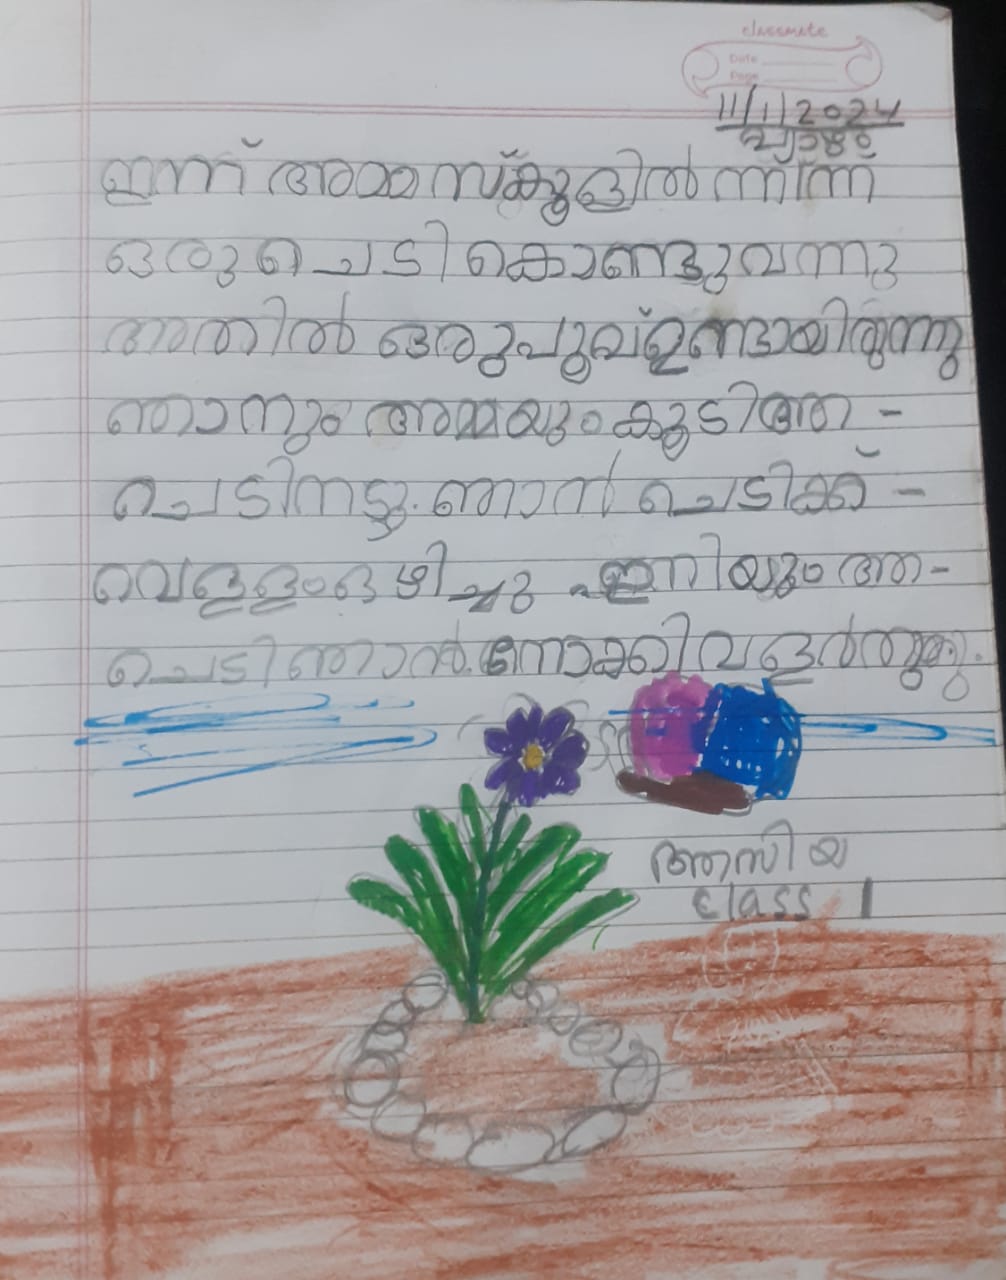 classmate
Date
Page
11/1/2024
വ്യാഴം
ഇന്ന് അമ്മ സ്കൂളിൽ നിന്ന്
ഒരു ചെടി കൊണ്ടുവന്നു
അതിൽ ഒരു പൂവ് ഉണ്ടായിരുന്നു
ഞാനും അമ്മയും കൂടി ആ -
ചെടി നട്ടു. ഞാൻ ചെടിക്ക് -
വെള്ളം ഒഴിച്ചു. ഇനിയും ആ -
ചെടി ഞാൻ നോക്കി വളർത്തും.
ആസിയ
class 1